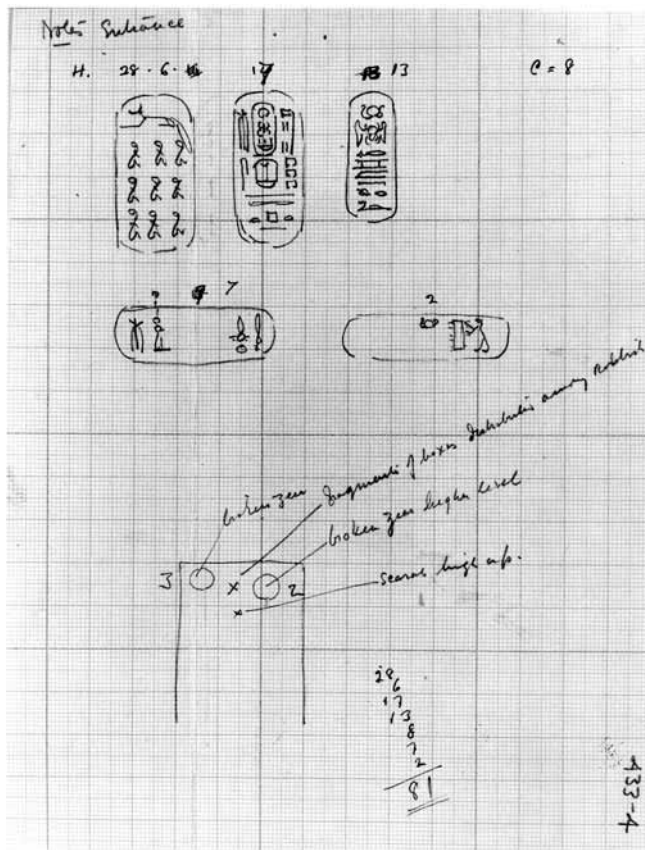 Notes Entrance
H. 28 - 6 - 17 13 C = 8
7 2
broken zeer
fragments of boxes distributed among rubbish
broken zeer higher level
3 x 2
x
scarab high up.
28
6
17
13
8
7
2
81
433-4